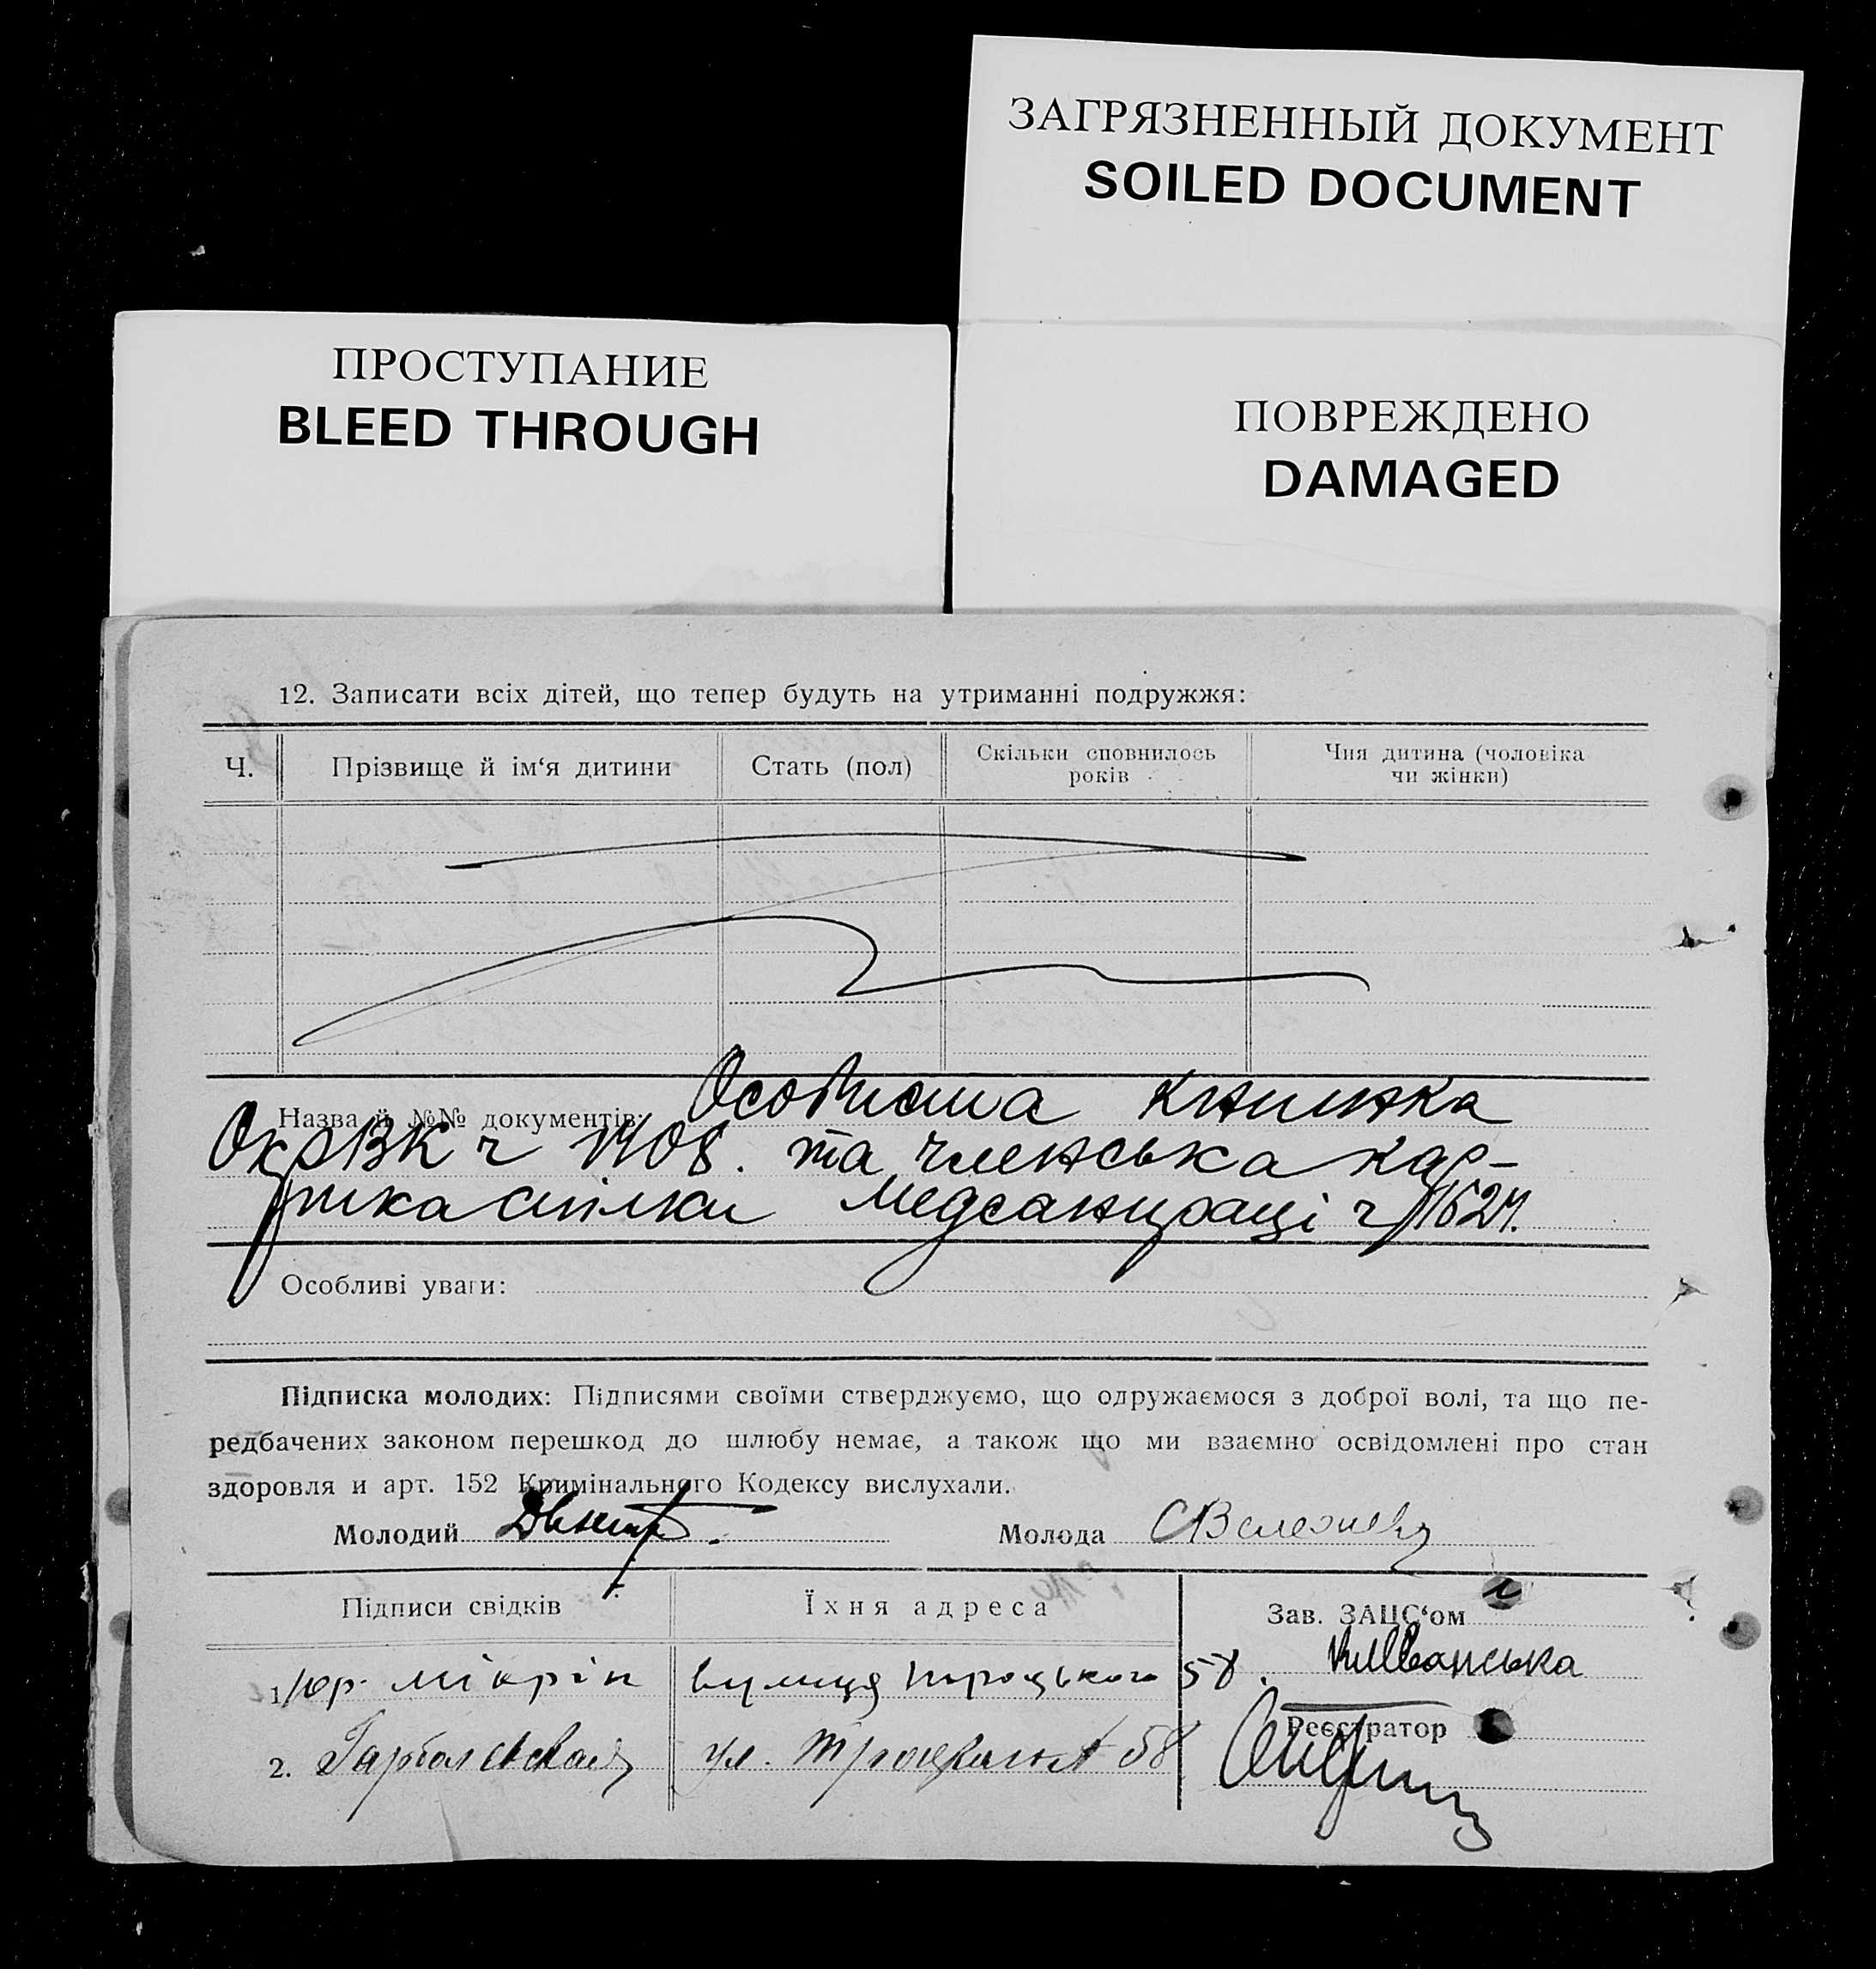 ЗАГРЯЗНЕННЫЙ ДОКУМЕНТ
SOILED DOCUMENT
ПРОСТУПАНИЕ
BLEED THROUGH
ПОВРЕЖДЕНО
DAMAGED
12. Записати всіх дітей, що тепер будуть на утриманні подружжя:
Ч.
Прізвище й ім‘я дитини
Стать (пол)
Скільки сповнилось
років
Чия дитина (чоловіка
чи жінки)
Назва й №№ документів: Особиста книжка
ОкрВК ч 1408. та членська кар-
тка спілки Медсанпраці ч
Особливі уваги:
Підписка молодих: Підписями своїми стверджуємо, що одружаємося з доброї волі, та що пе-
редбачених законом перешкод до шлюбу немає, а також що ми взаємно освідомлені про стан
здоровля и арт. 152 Кримінального Кодексу вислухали.
Молодий
Молода
Підписи свідків
Їхня адреса
Зав. ЗАЦС‘ом
1 Юр. вулиця Троцького 58.
Реєстратор
2. ул. Троцкого 58